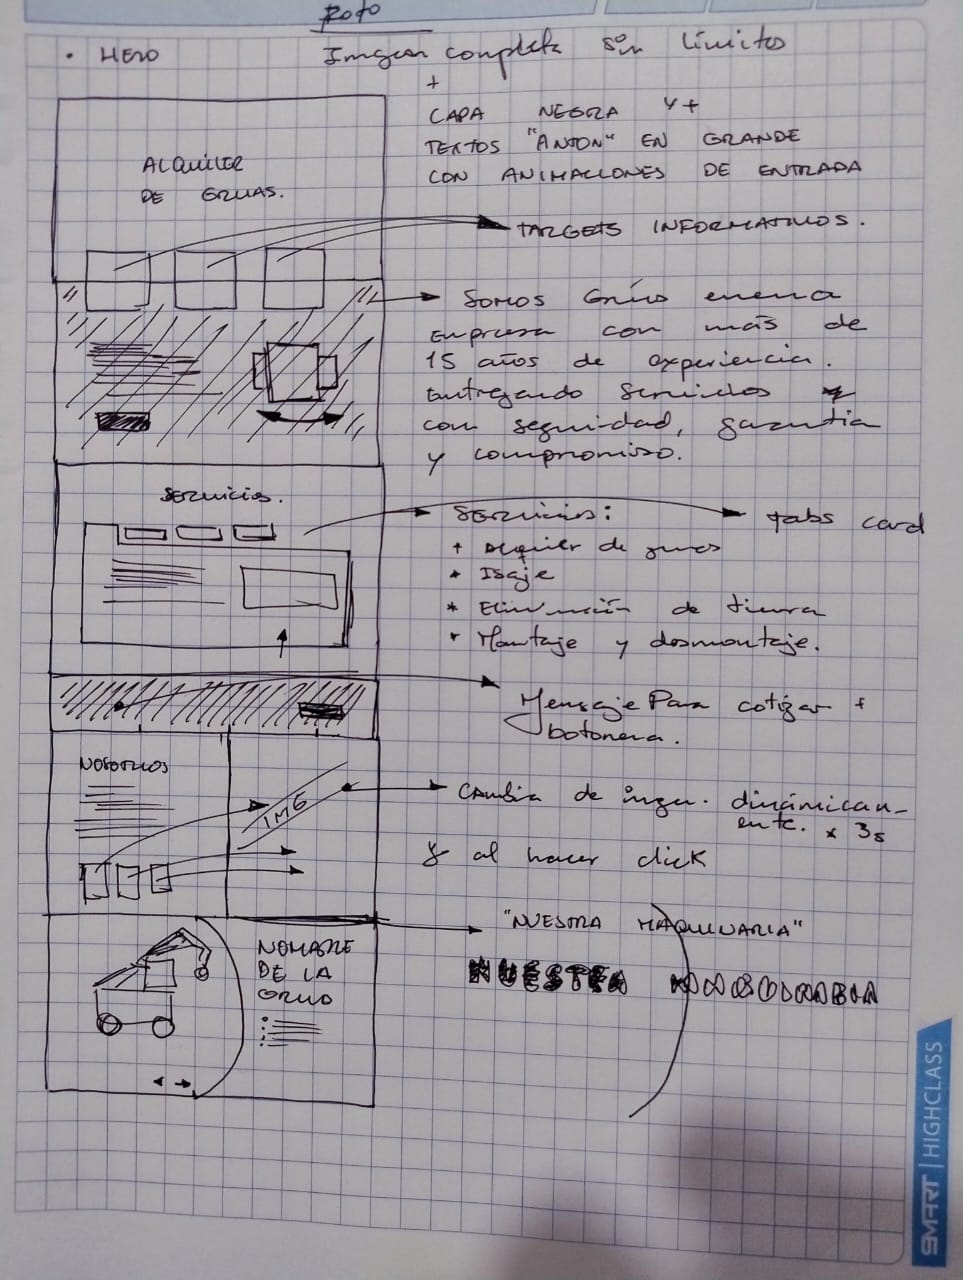 Foto
• HERO
Imagen completa sin límites
+
CAPA NEGRA Y +
TEXTOS "ANTON" EN GRANDE
CON ANIMACIONES DE ENTRADA
ALQUILER
DE GRUAS.
TARGETS INFORMATIVOS.
SOMOS
empresa con más de
15 años de experiencia.
Entregando Servicios
con seguridad, garantia
y compromiso.
SERVICIOS.
SERVICIOS:
tabs card
+ Alquiler de gruas
* Isaje
* Eliminación de tierra
* Montaje y desmontaje.
Mensaje Para cotizar +
botonera.
NOSOTROS
IMG
Cambia de imgn. dinámicam-
ente. x 3s
y al hacer click
"NUESTRA MAQUINARIA"
NUESTRA
NOMBRE
DE LA
GRUA
SMART | HIGHCLASS